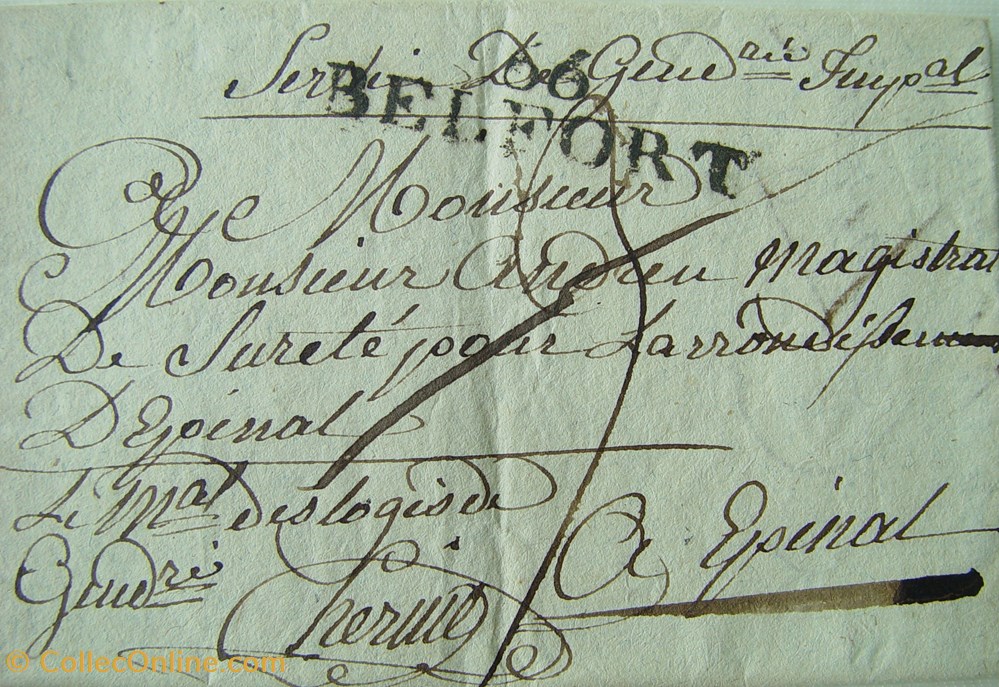 Service De Gendrie Impal
66
BELFORT
A Monsieur
Monsieur Andieu Magistrat
De Sureté pour Larrondissem
D'Epinal
Le Mal des logis de
Gendrie
A Epinal
© CollecOnline.com